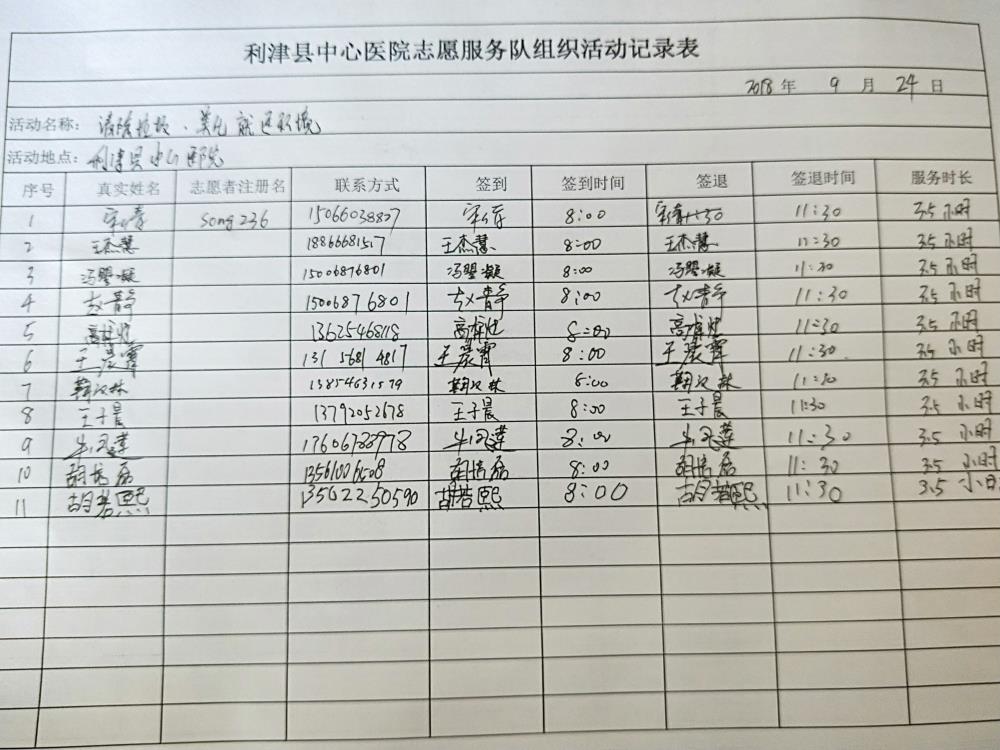 利津县中心医院志愿服务队组织活动记录表
2018 年 9 月 24 日
活动名称: 清除垃圾、美化就医环境
活动地点: 利津县中心医院
序号 真实姓名 志愿者注册名 联系方式 签到 签到时间 签退 签退时间 服务时长
1 song236 15066038827 8:00 11:30 3.5小时
2 王杰慧 18866681517 王杰慧 8:00 王杰慧 11:30 3.5小时
3 冯翠凝 15006876801 冯翠凝 8:00 冯翠凝 11:30 3.5小时
4 赵静 15006876801 赵静 8:00 赵静 11:30 3.5小时
5 13625468118 8:00 11:30 3.5小时
6 王晨霄 131 5681 4817 王晨霄 8:00 王晨霄 11:30 3.5小时
7 13854631579 8:00 11:30 3.5小时
8 王子晨 13792052678 王子晨 8:00 王子晨 11:30 3.5小时
9 17606788978 8:00 11:30 3.5小时
10 胡培磊 胡培磊 8:00 胡培磊 11:30 3.5小时
11 胡若熙 13562250590 胡若熙 8:00 胡若熙 11:30 3.5小时